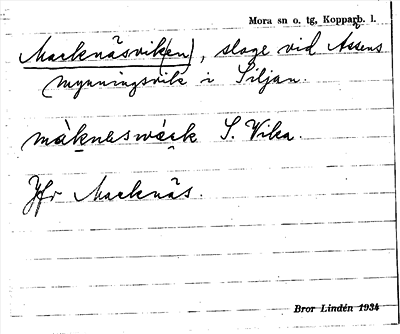 Mora sn o. tg, Kopparb. l.
Marknäsvik(en), slage vid Åsens
mynningsvik i Siljan.
màkneswàsk S. Vika.
Jfr Marknäs.
Bror Lindén 1934